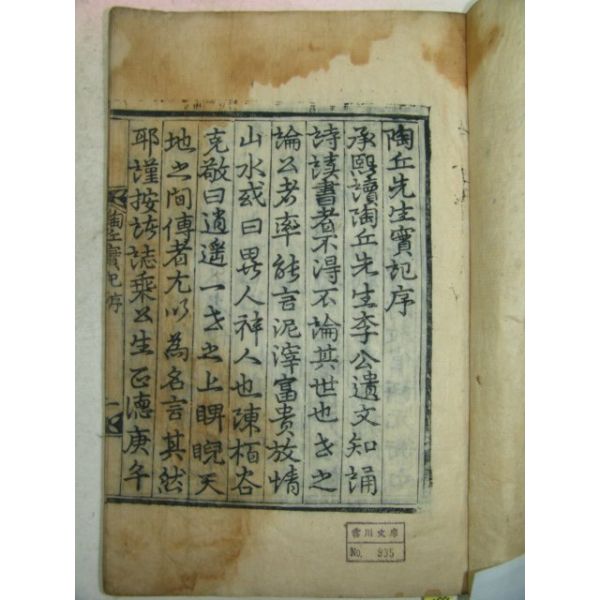 陶丘先生實記序
承熙讀陶丘先生李公遺文知誦
詩讀書者不得不論其世也世之
論公者率能言泥滓富貴放情
山水或曰異人神人也陳栢谷
克敬曰逍遥一世之上睥睨天
地之間傳者尤以為名言其然
耶謹按誌乘公生正德庚午
陶丘實記序
一
雪川文庫
No. 935